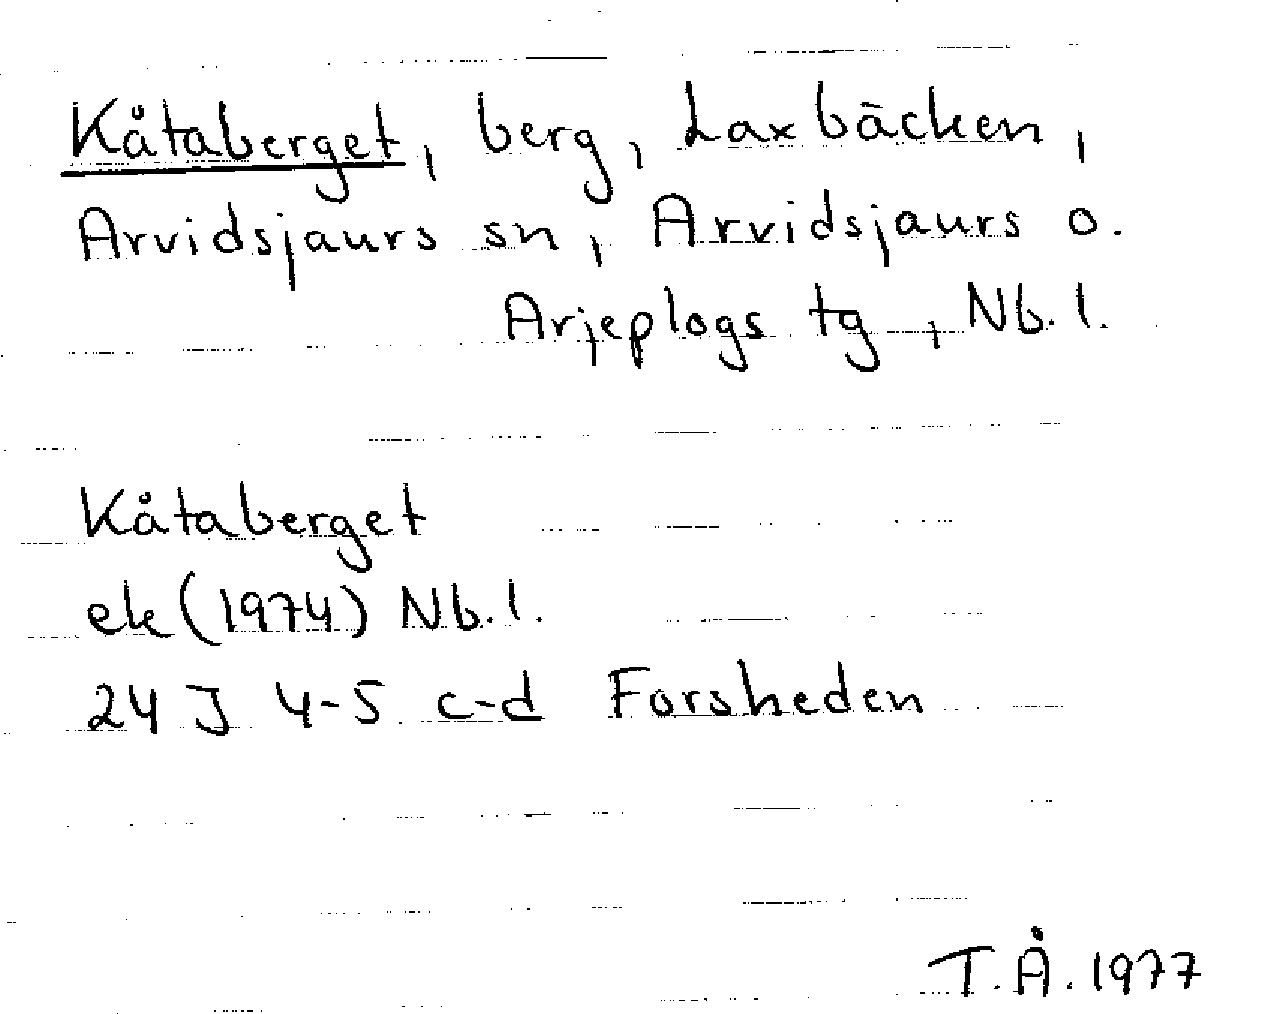 Kåtaberget, berg, Laxbäcken,
Arvidsjaurs sn, Arvidsjaurs o.
Arjeplogs tg, Nb. l.
Kåtaberget
ek (1974) Nb. l.
24 J 4-5 c-d Forsheden
T.Å. 1977